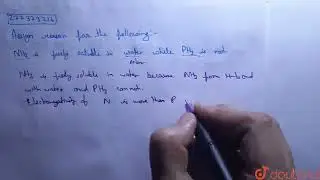 Assign reason for the following:-
NH3 is freely soluble in water while PH3 is not
NH3 is freely soluble in water because NH3 form H-bond
with water and PH3 can not.
Electronegativity of N is more than P
doubtnut